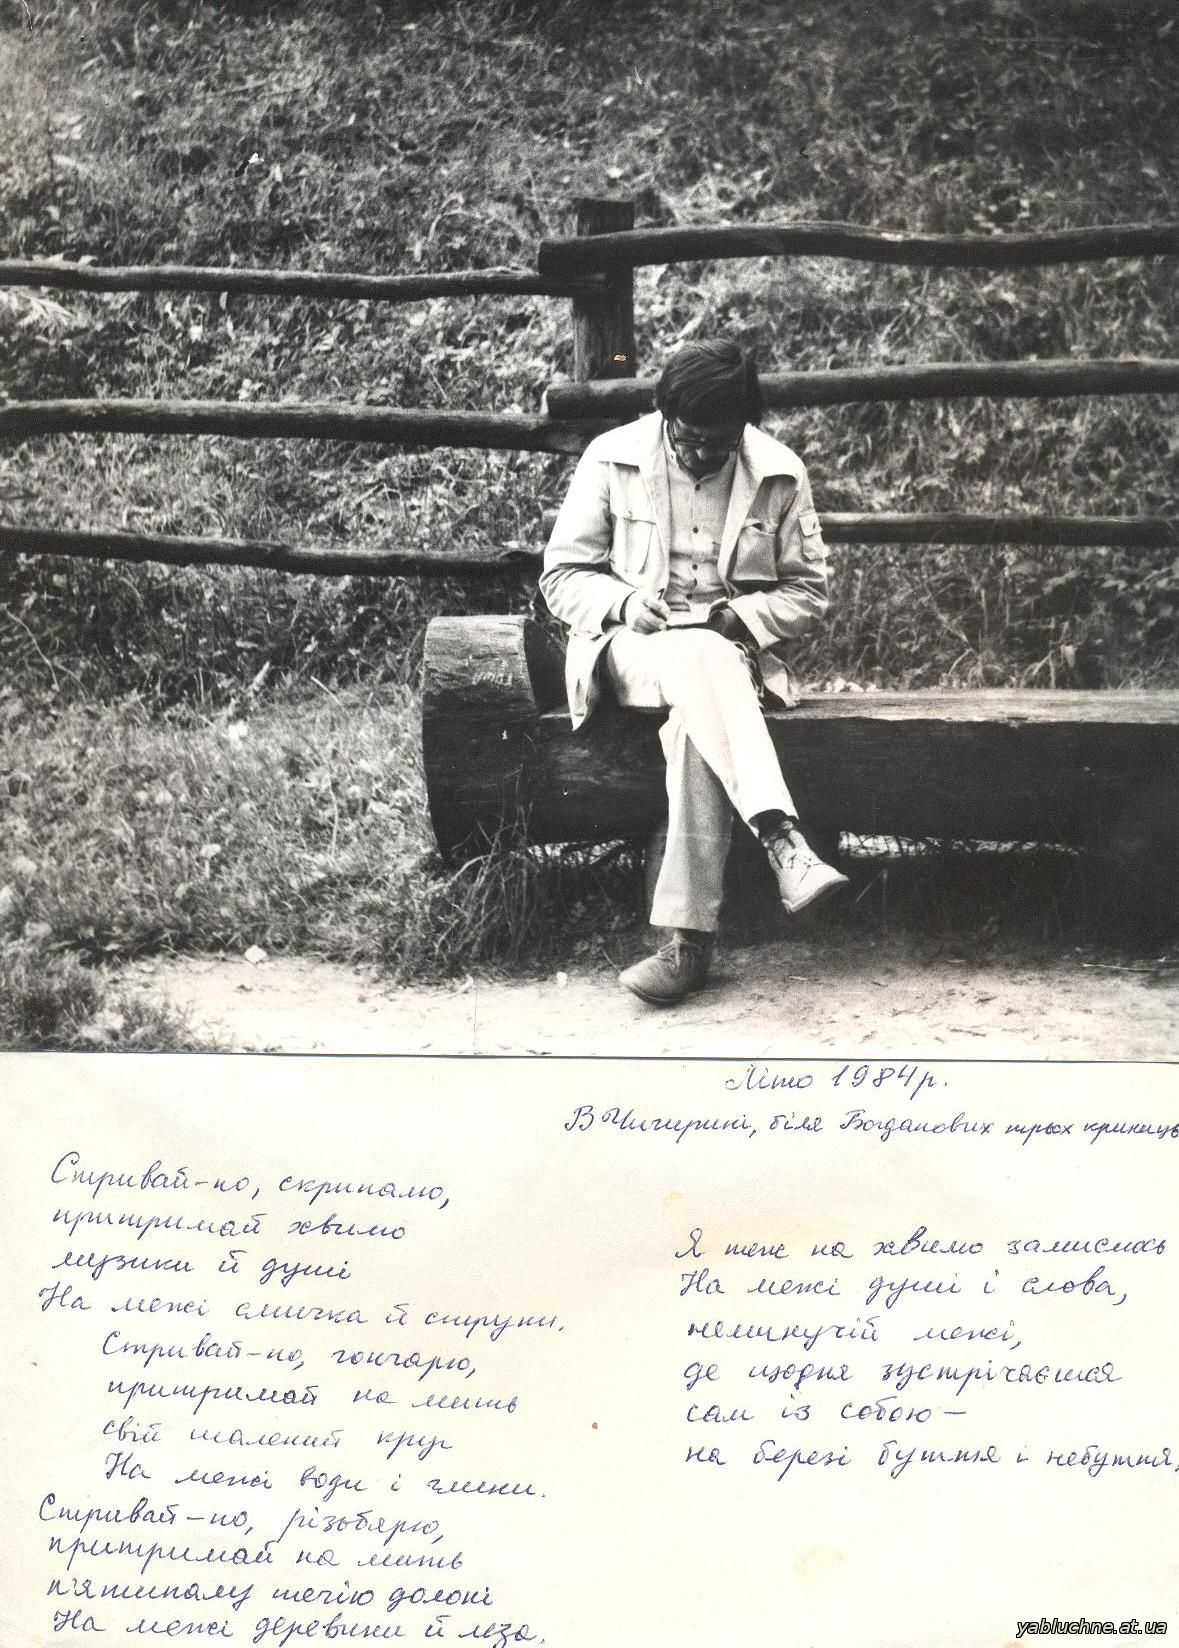 Літо 1984р.
В Чигирині, біля Богданових трьох криниць
Стривай-но, скрипалю,
притримай хвилю
музики й душі
На межі смичка й струни.
Стривай-но, гончарю,
притримай на мить
свій шалений круг
На межі води і глини.
Стривай-но, різьбярю,
притримай на мить
п'ятипалу течію долоні
На межі деревини й леза.
Я теж на хвилю замислюсь
На межі душі і слова,
неминучій межі,
де щодня зустрічаєшся
сам із собою —
на березі буття і небуття,
yabluchne.at.ua